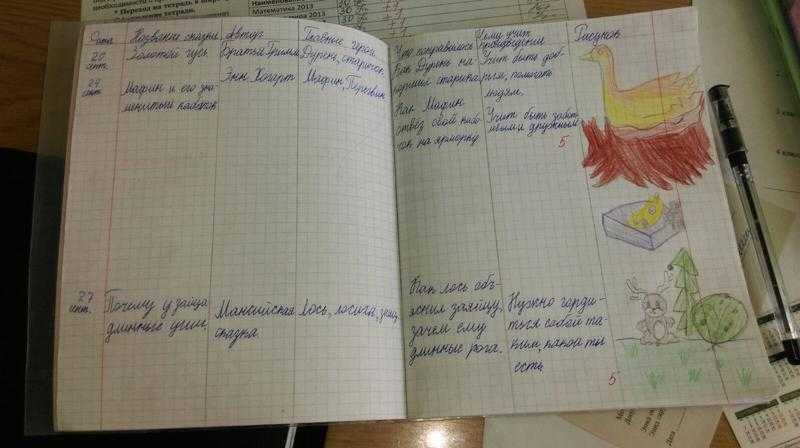 * Перевод на тетрадь в широ
Оформление тетради.
Математика 2013
Дата
Название сказки
Автор
Главные герои
Что понравилось
Чему учит произведение
Рисунок
20 сент.
Золотой гусь
Братья Гримм
Дурень, старичок
Как Дурень накормил старика
Учит быть добрым, помогать людям.
24 сент.
Мафин и его знаменитый кабачок
Энн Хогарт
Мафин, Перегрин
Как Мафин отвёз свой кабачок на ярмарку
Учит быть заботливым и дружным
5
27 сент.
Почему у зайца длинные уши.
Мансийская сказка.
Лось, лосиха, заяц
Как лось объяснил заяицу, зачем ему длинные рога.
Нужно гордиться собой таким, какой ты есть
5